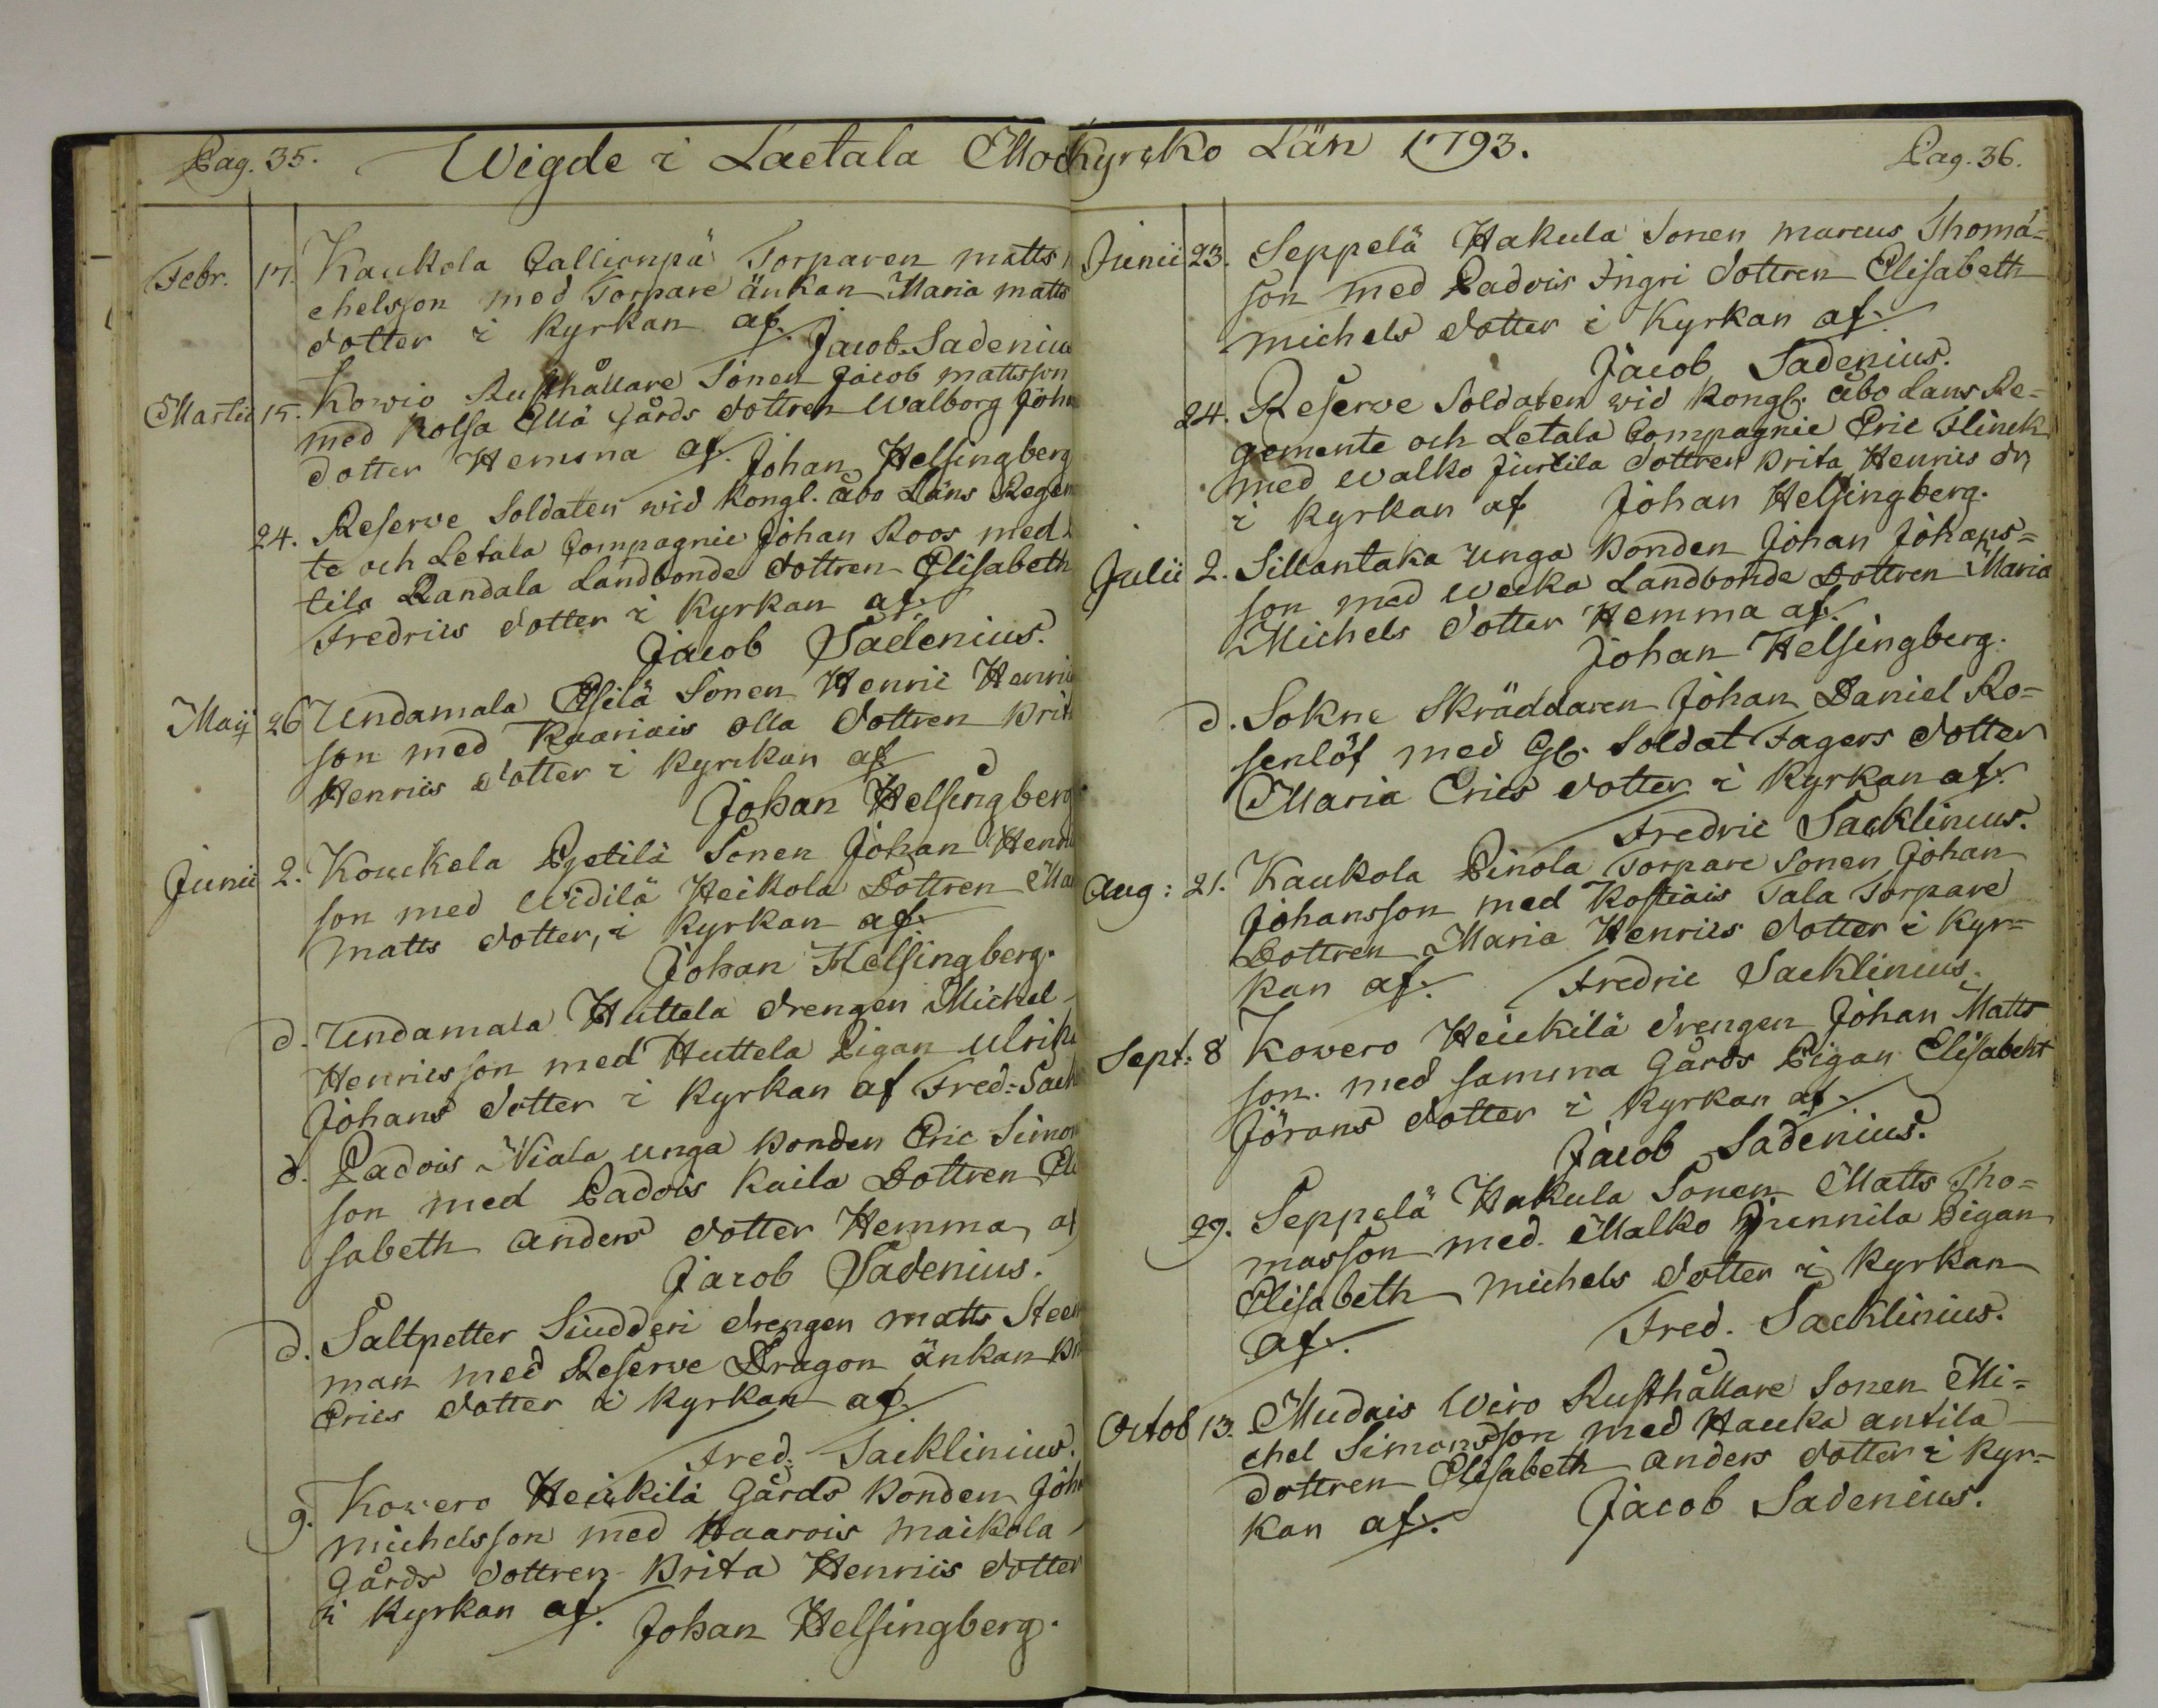 Pag. 35.
Wigde i Laetala Mockyrko Län 1793.
Pag. 36.
Febr. 17. Kaukola Callionpä Torparen matts
chelsson med Torpare änkan Maria matts
dotter i Kyrkan af. Jacob Sadenius
Martii 15. Kowio Rusthållare Sonen Jacob mattsson
med Kolsa Ellä Gårds dottren Walborg Joha
dotter Hemma af. Johan Helsingberg
24. Reserve Soldaten wid Kongl. Åbo Läns Regem
te och Letala Compagnie Johan Roos med
tila Randala Landbonde dottren Elisabeth
Fredrics dotter i Kyrkan af.
Jacob Sadenius.
Maij 26 Undamala Esilä Sonen Henric Henric
son med Kaariais olla dottren Brit
Henrics dotter i Kyrckan af
Johan Helsingberg
Junii 2. Kouckela Pyetilä Sonen Johan Henric
son med Widilä Heikola Dottren Mar
matts dotter, i Kyrkan af.
Johan Helsingberg.
d. Undamala Huttela drengen Michel
Henricsson med Huttela Pigan Ulrika
Johans dotter i Kyrkan af Fred: Sack
d. Padois Niala unga bonden Eric Simon
son med Padois Kaila Dottren Eli
sabeth anders dotter Hemma af
Jacob Sadenius.
d. Saltpetter Siudderi drengen matts Steen
man med Reserve Dragon änkan Bri
Erics dotter i Kyrkan af.
Fred: Sacklinius.
9. Kowero Heickilä Gårds bonden Joh
michelsson med Haarois maikola
Gårds dottren Brita Henrics dotter
i Kyrkan af. Johan Helsingberg.
Junii 23. Seppelä Hakula Sonen marcus Thoma=
son med Padois Ingri dottren Elisabeth
michels dotter i Kyrkan af.
Jacob Sadenius.
24. Reserve Soldaten wid Kongl. Åbo Läns Re=
gemente och Letala Compagnie Eric Flinck
med Walko Jurtila dottren Brita Henrics dr
i Kyrkan af Johan Helsingberg.
Julii 2. Sillantaka unga bonden Johan Johans=
son med Wecka Landbonde Dottren Maria
Michels dotter Hemma af.
Johan Helsingberg.
d. Sokne Skräddaren Johan Daniel Ro=
senlöf med Gl. Soldat Fagers dotter
Maria Erics dotter i Kyrkan af.
Fredric Sacklinius.
Aug: 21. Kaukola Pinola Torpare Sonen Johan
Johansson med Kostiais Tala Torpare
Dottren Maria Henrics dotter i Kyr=
kan af. Fredric Sacklinius.
Sept: 8 Kowero Heickilä drengen Johan Matts
son. med samma Gårds Pigan Elisabeht
Jörans dotter i Kyrkan af.
Jacob Sadenius.
29. Seppelä Hakula Sonen Matts Tho=
masson med Malko Junnila Pigan
Elisabeth michels dotter i Kyrkan
af. Fred. Sacklinius.
Octob 13. Mudais Wiro Rusthållare Sonen Mi=
chel Simonsson med Hauka antila
dottren Elisabeth anders dotter i Kyr=
kan af. Jacob Sadenius.